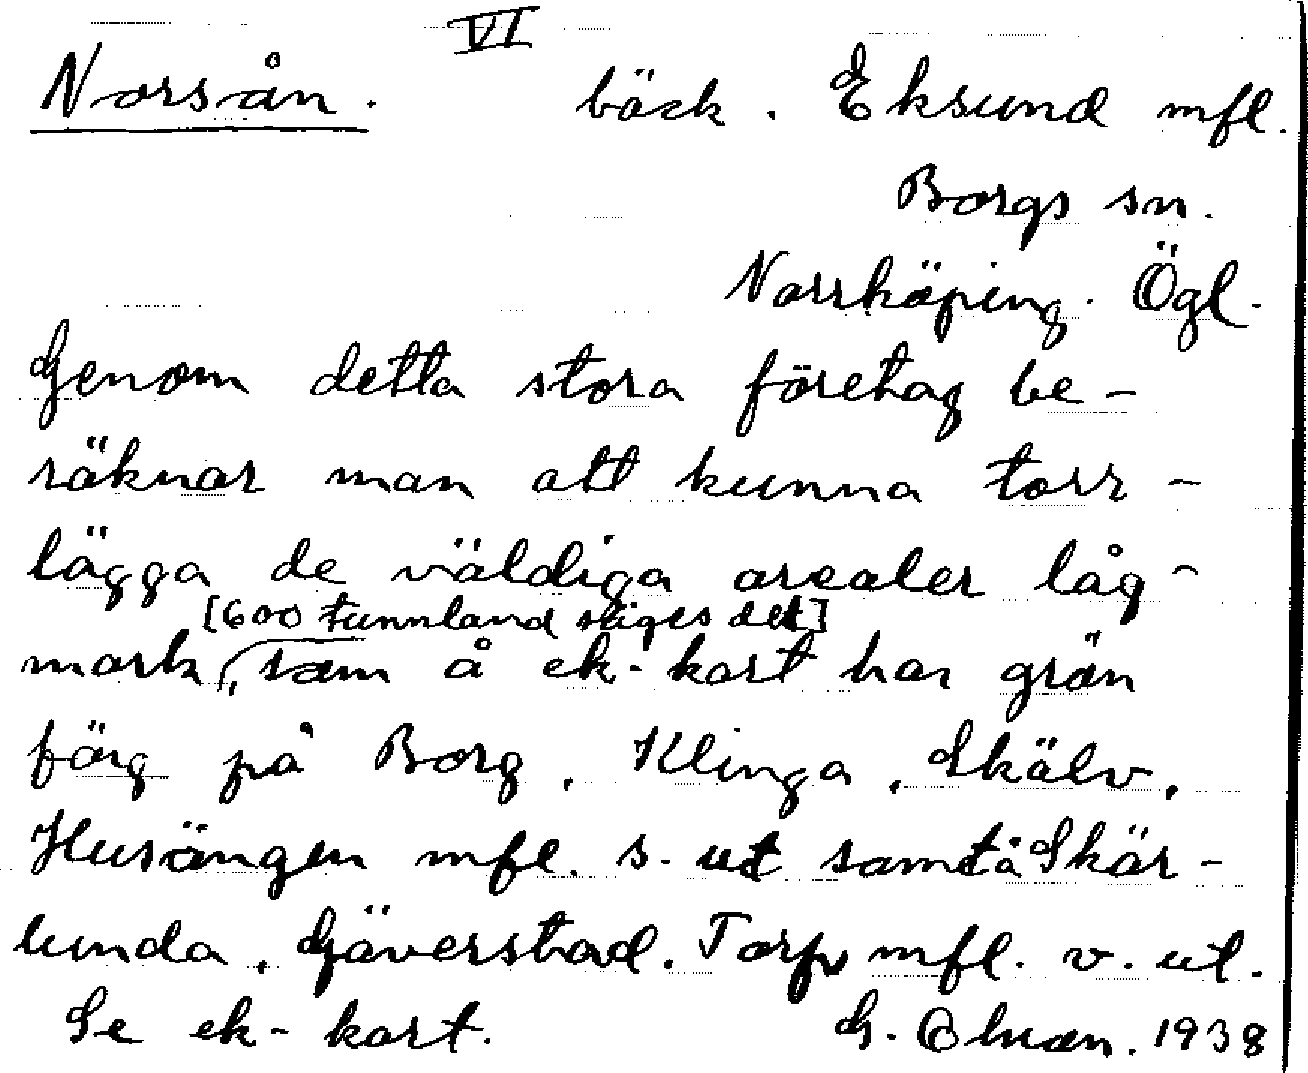 VI
Norsån. bäck. Eksund mfl.
Borgs sn.
Norrköping. Ögl.
Genom detta stora företag be-
räknar man att kunna torr-
lägga de väldiga arealer låg-
[600 tunnland säges det]
mark, som å ek-kart har grön
färg på Borg, Klinga, Skälv,
Husängen mfl. s. ut samt å Skär-
lunda, Gäverstad. Torp mfl. v. ut.
Se ek-kart. G. 1938